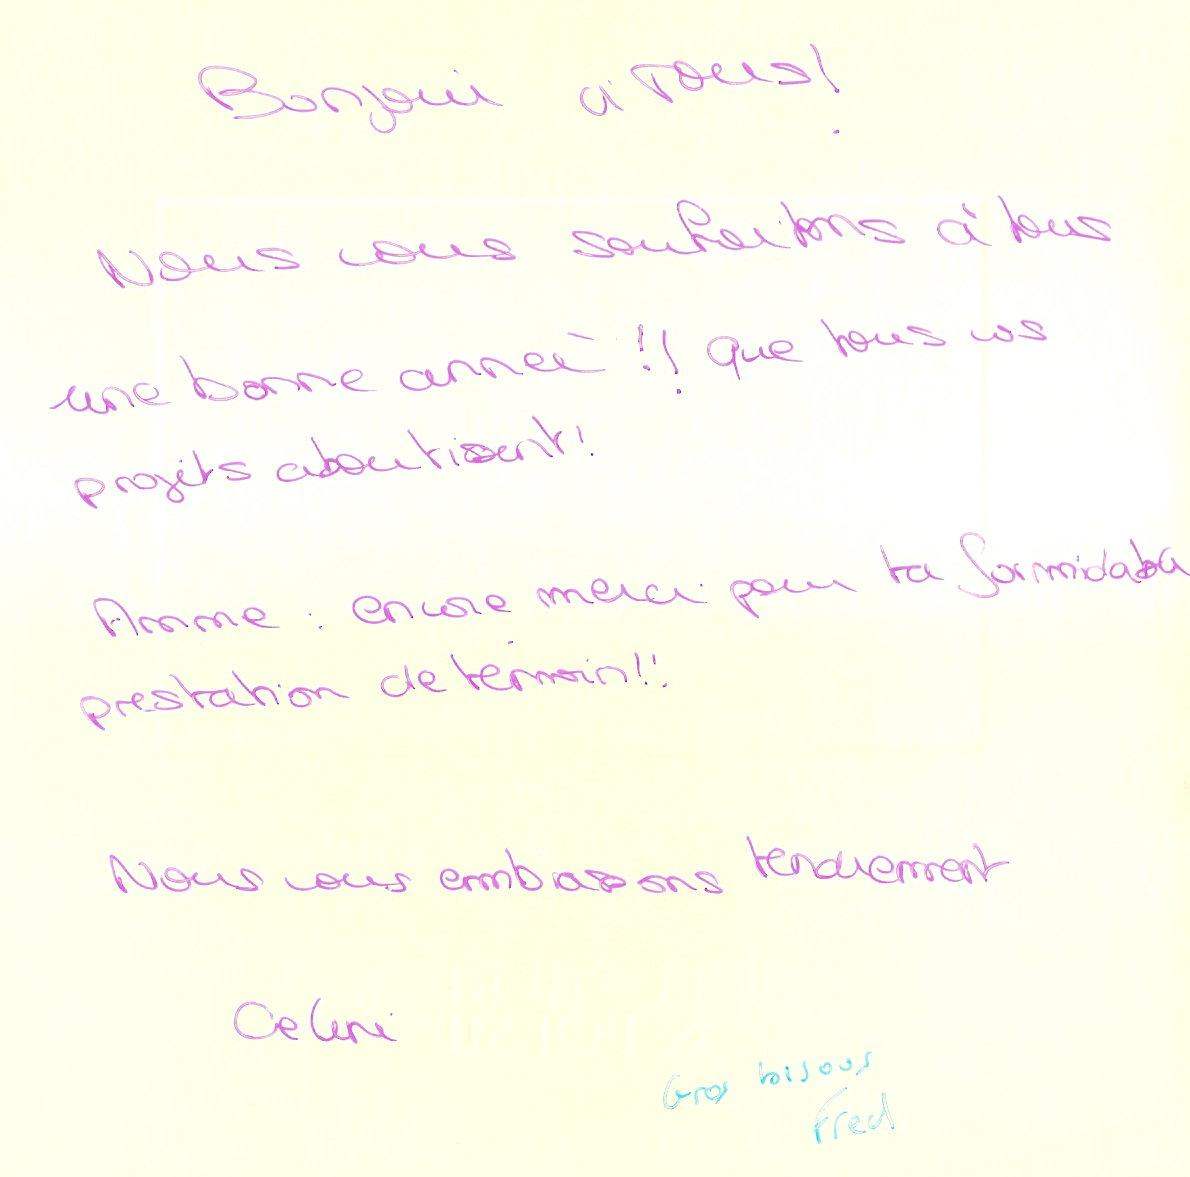 Bonjour à Tous !
Nous vous souhaitons à tous
une bonne année !! Que tous vos
projets aboutissent !
Anne : encore merci pour ta formidable
prestation de témoin !!
Nous vous embrassons tendrement
Celine
Gros bisous
Fred